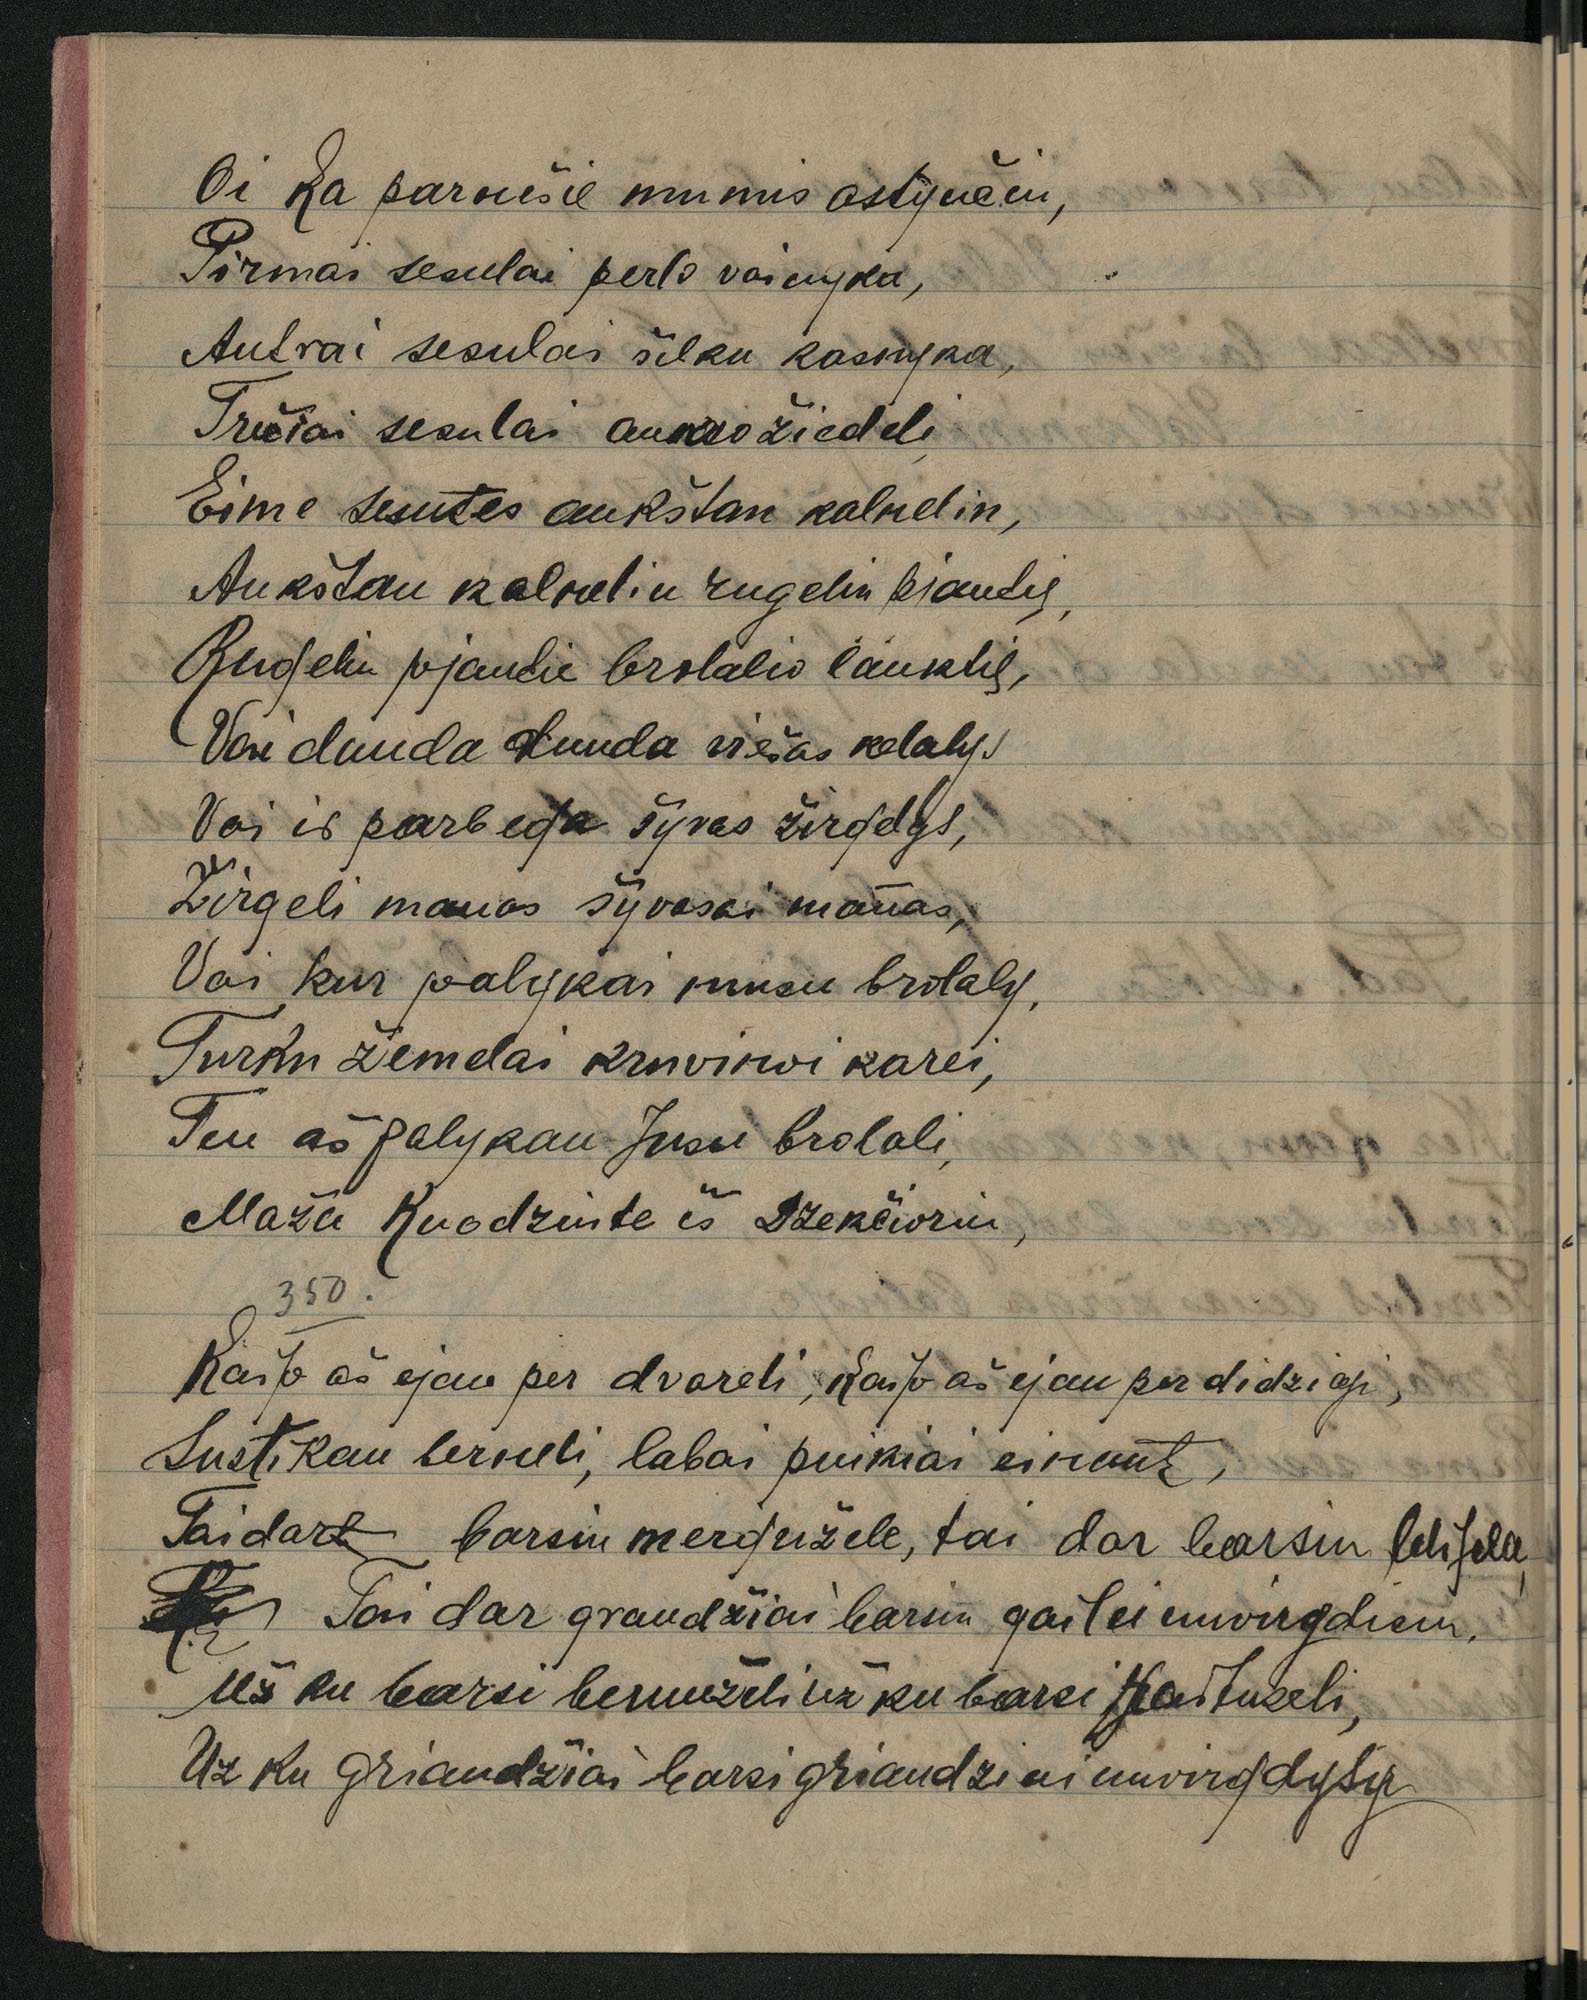 Oi ka parnešie mumis astynčiu,
Pirmai sesulai perlo vainyka,
Autrai sesulai šilku kasnyka,
Trečiai sesulai aukso žiedeli,
Eime sesutes aukštan kalnelin,
Aukštan kalneliu rugeliu pjautie,
Rugeliu pjautie brolalio lauktie,
Vai dunda dunda viešas kelalys
Vai ir parbega šyvas žirgelys,
Žirgeli manas šyvasai manas,
Vai kur palykai musu brolaly,
Turku žemelai kruvinoi karei,
Ten aš palykau Jusu brolali,
Maža Kuodziute iš Dzekčioriu,
350.
Kaip aš ejau per dvareli, Kaip aš ejau per didziaji,
Sustikau berneli, labai puikiai einant,
Taidar barsiu mergužele, tai dar barsiu lelijela,
Tai dar graudžiai barsiu gailei nuvirgdisiu.
Už ku barsi bernuželi už ku barsi skaistuseli,
Uz ku griaudžiai barsi griaudziai nuvirgdysi